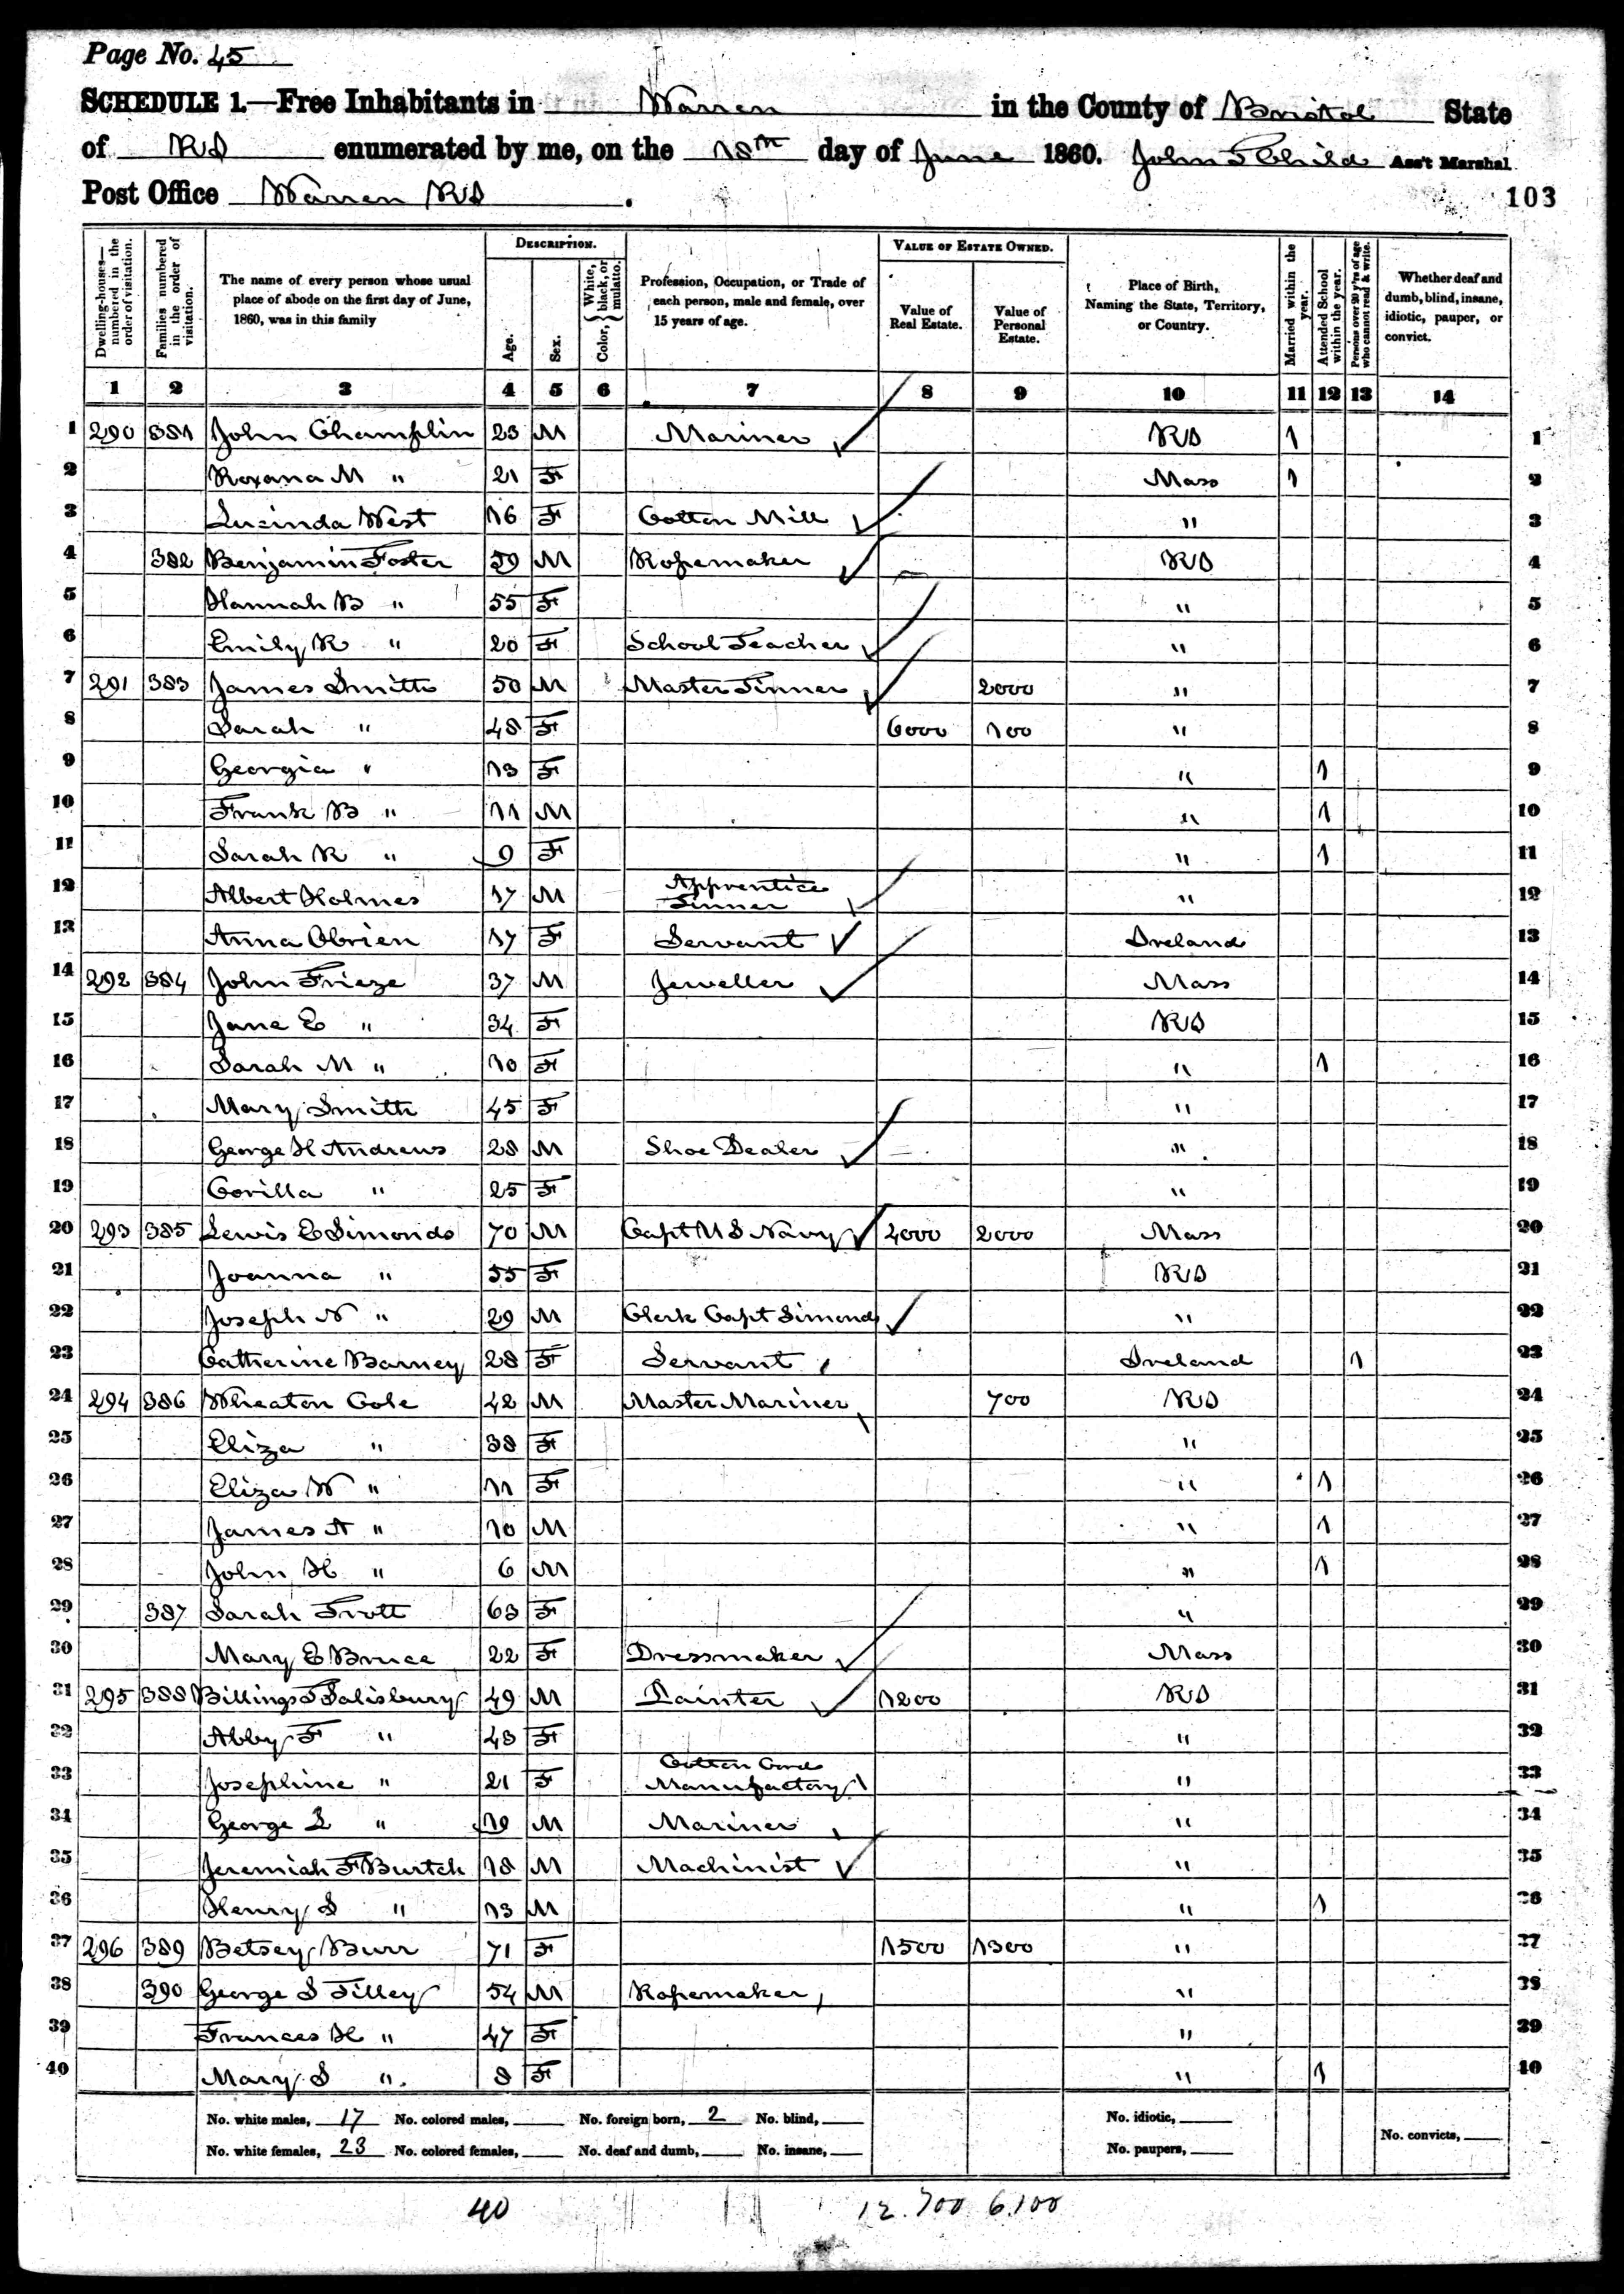 Page No. 45
SCHEDULE 1.—Free Inhabitants in Warren in the County of Bristol State
of RI enumerated by me, on the 18th day of June 1860. John T Child Ass't Marshal
Post Office Warren RI . 103
Dwelling-houses—numbered in the order of visitation.
Families numbered in the order of visitation.
The name of every person whose usual place of abode on the first day of June, 1860, was in this family
DESCRIPTION.
Age.
Sex.
Color, { White, black, or mulatto. }
Profession, Occupation, or Trade of each person, male and female, over 15 years of age.
VALUE OF ESTATE OWNED.
Value of Real Estate.
Value of Personal Estate.
Place of Birth, Naming the State, Territory, or Country.
Married within the year.
Attended School within the year.
Persons over 20 y'rs of age who cannot read & write.
Whether deaf and dumb, blind, insane, idiotic, pauper, or convict.
1 2 3 4 5 6 7 8 9 10 11 12 13 14
1 290 381 John Champlin 23 M Mariner RI 1 1
2 Roxana M " 21 F Mass 1 2
3 Lucinda West 16 F Cotton Mill " 3
4 382 Benjamin Foster 59 M Ropemaker RI 4
5 Hannah B " 55 F " 5
6 Emily R " 20 F School Teacher " 6
7 291 383 James Smith 50 M Master Tinner 2000 " 7
8 Sarah " 48 F 6000 100 " 8
9 Georgia " 13 F " 1 9
10 Frank B " 11 M " 1 10
11 Sarah R " 9 F " 1 11
12 Albert Holmes 17 M Apprentice Tinner " 12
13 Anna Obrien 17 F Servant Ireland 13
14 292 384 John Frieze 37 M Jeweller Mass 14
15 Jane E " 34 F RI 15
16 Sarah M " 10 F " 1 16
17 Mary Smith 45 F " 17
18 George H Andrews 28 M Shoe Dealer " 18
19 Corilla " 25 F " 19
20 293 385 Lewis E Simonds 70 M Capt U S Navy 4000 2000 Mass 20
21 Joanna " 55 F RI 21
22 Joseph N " 29 M Clerk Capt Simonds " 22
23 Catherine Barney 28 F Servant Ireland 1 23
24 294 386 Wheaton Cole 42 M Master Mariner 700 RI 24
25 Eliza " 38 F " 25
26 Eliza W " 11 F " 1 26
27 James A " 10 M " 1 27
28 John H " 6 M " 1 28
29 387 Sarah Trott 63 F " 29
30 Mary E Bruce 22 F Dressmaker Mass 30
31 295 388 Billings T Salisbury 49 M Painter 1200 RI 31
32 Abby F " 48 F " 32
33 Josephine " 21 F Cotton Cord Manufactory " 33
34 George L " 19 M Mariner " 34
35 Jeremiah F Burtch 18 M Machinist " 35
36 Henry S " 13 M " 1 36
37 296 389 Betsey Burr 71 F 1500 1300 " 37
38 390 George S Tilley 54 M Ropemaker " 38
39 Frances H " 47 F " 39
40 Mary S " 8 F " 1 40
No. white males, 17 No. colored males, No. foreign born, 2 No. blind, No. idiotic,
No. white females, 23 No. colored females, No. deaf and dumb, No. insane, No. paupers, No. convicts,
40 12.700 6.100